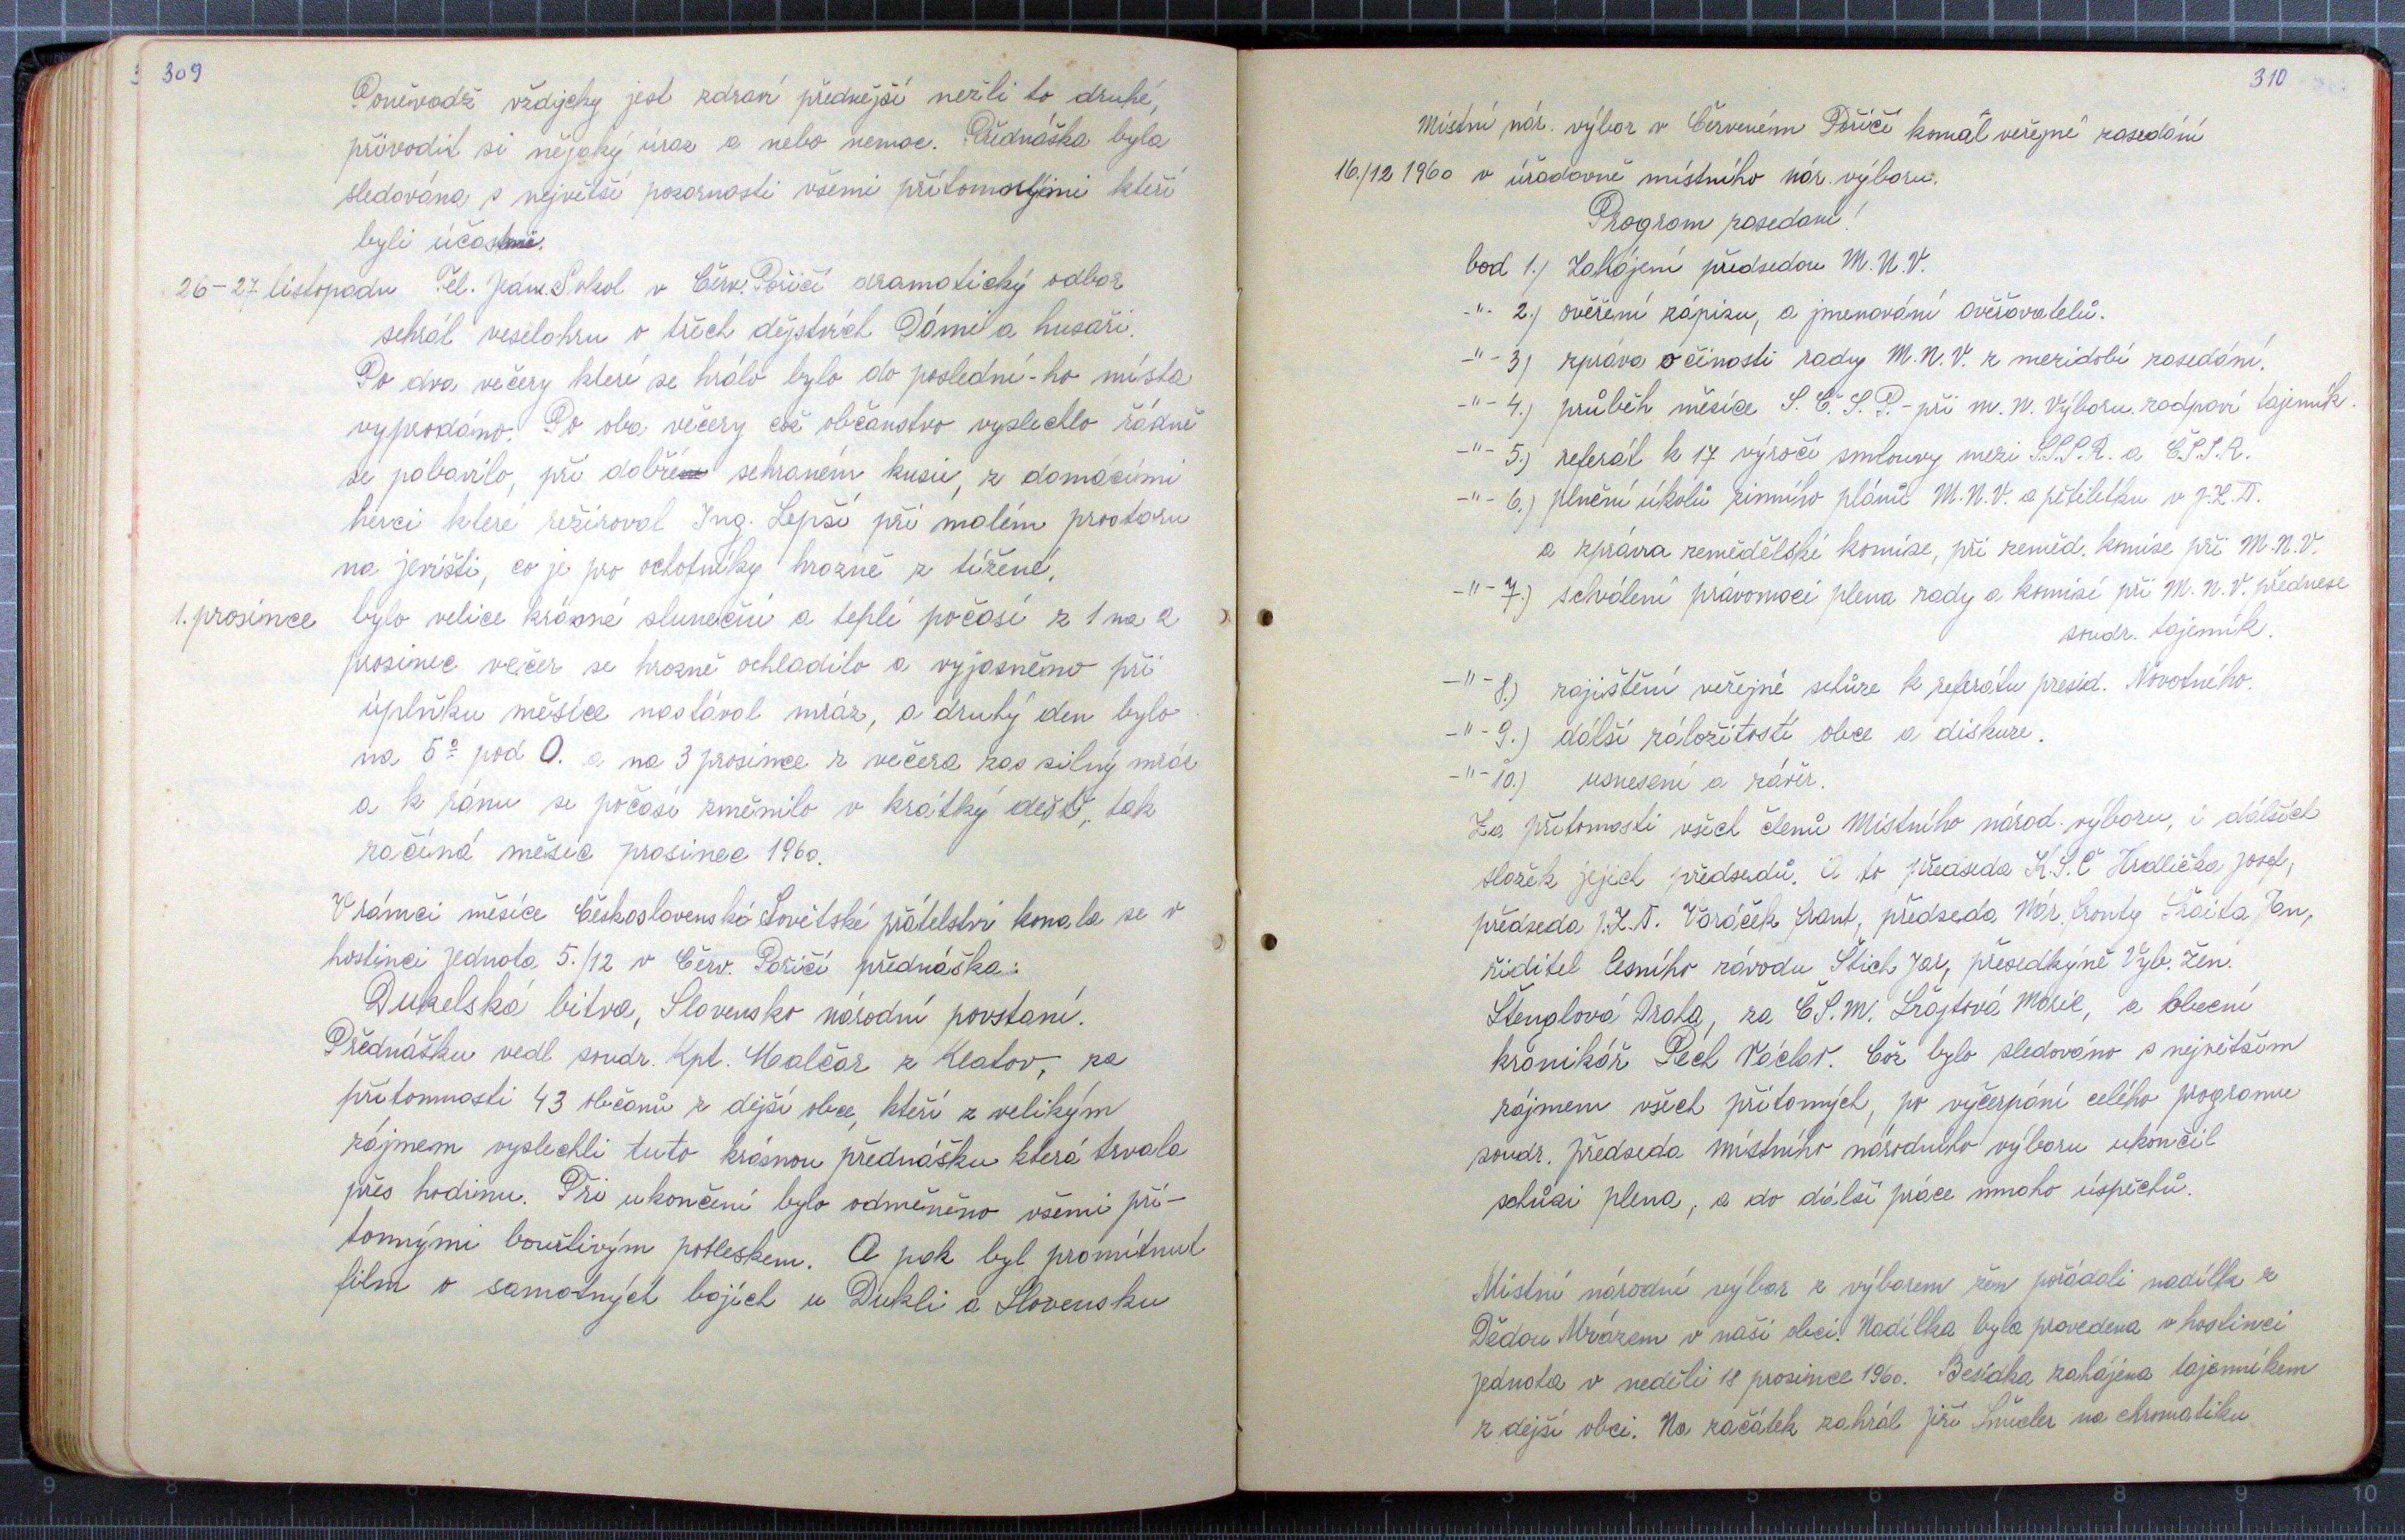 309
Poněvadž vždycky jest zdraví přednější nežli to druhé,
přivodit si nějaký úraz a nebo nemoc. Přednáška byla
sledována s největší pozorností všemi přítomnými kteří
byli účastni.
26-27 listopadu Těl. Jedn. Sokol v Červ. Poříčí dramatický odbor
sehrál veselohru o třech dějstvích Dámi a husaři.
Po dva večery které se hrálo bylo do poslední-ho místa
vyprodáno. Po oba večery což občanstvo vyslechlo řádně
se pobavilo, při dobře sehraném kusu, z domácími
herci které režiroval Ing. Lepší při malém prostoru
na jevišti, co je pro ochotníky hrozně z tížené.
1. prosince bylo velice krásné sluneční a teplé počasí z 1 na 2
prosinec večer se hrozně ochladilo a vyjasněno při
úplňku měsíce nastával mráz, a druhý den bylo
na 5º pod 0. a na 3 prosince z večera zas silný mráz
a k ránu se počasí změnilo v krátký déšť, tak
začíná měsíc prosinec 1960.
V rámci měsíce Československá Sovětské přátelství konala se v
hostinci Jednota 5./12 v Červ. Poříčí přednáška:
Dukelská bitva, Slovensko národní povstaní.
Přednášku vedl soudr. Kpt. Malčár z Klatov, za
přítomnosti 43 občanů z dejší obce, kteří z velikým
zájmem vyslechli tuto krásnou přednášku která trvala
přes hodinu. Při ukončení bylo odměněno všemi pří-
tomnými bouřlivým potleskem. A pak byl promítnut
film o samotných bojích u Dukli a Slovensku
310
Místní nár. výbor v Červeném Poříčí konal veřejné zasedání
16./12 1960 v úřadovně místního nár. výboru.
Program zasedaní!
bod 1.) Zahájení předsedou M.N.V.
-"- 2.) ověření zápisu, a jmenování ověřovatelů.
-"- 3) zpráva o činosti rady M.N.V. z mezidobí zasedání.
-"- 4.) průběh měsíce S.Č.S.P. - při m. n. Výboru. zodpoví tajemník.
-"- 5.) referát k 17 výročí smlouvy mezi S.S.S.R. a Č.S.S.R.
-"- 6.) plnění úkolů zimního plánů M.N.V. a pětiletku v J.Z.D.
a zpráva zemědělské komise, při zeměd. komise při M.N.V.
-"- 7.) schválení právomoci plena rady a komisí při M.N.V. přednese
soudr. tajemník.
-"- 8.) zajištění veřejné schůze k referátu presid. Novotného.
-"- 9.) dálší záležitostí obce a diskuze.
-"- 10.) usnesení a závěr.
Za přítomosti všech členů Místního národ. výboru, i dálších
složek jejich předsedů. A to předseda K.S.Č Hrdlička Josef,
předseda J.Z.D. Voráček Frant, předseda Nár. fronty Jan,
ředitel lesního závodu Štich Jar, přesedkýně Výb. žen.
Štenglová Draha, za Č.S.M. Marie, a obecní
kronikář Pech Václav. Což bylo sledováno s největším
zájmem všech přítomých, po vyčerpání celého programu
soudr. předseda místního národního výboru ukončil
schůzi plena, a do dálší práce mnoho úspěchů.
Místní národní výbor z výborem žen pořádali nadílku z
Dědou Mrázem v naší obci. Nadílka byla provedena v hostinci
Jednota v neděli 18 prosince 1960. Besídka zahájena tajemníkem
z dejší obci. Na začátek zahrál Jiří na chromatiku